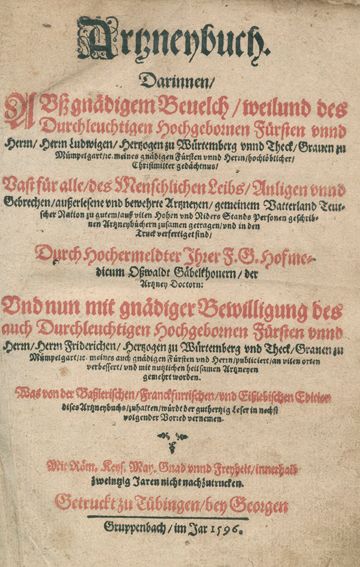 Artzneybuch.
Darinnen/
AUß gnädigem Beuelch/weilund des
Durchleuchtigen Hochgebornen Fürsten vnnd
Herrn/Herrn Ludwigen/Hertzogen zu Würtemberg vnnd Theck/Grauen zu
Mümpelgart/ꝛc. meines gnädigen Fürsten vnnd Herrn/hochlöblicher/
Christmilter gedächtnus/
Vast für alle/des Menschlichen Leibs/Anligen vnnd
Gebrechen/außerlesene vnd bewehrte Artzneyen/gemeinem Vatterland Teut-
scher Nation zu gutem/auß vilen Hohen vnd Niders Stands Personen geschrib-
nen Artzneybüchern zusamen getragen/vnd in den
Truck verfertiget sind/
Durch Hochermeldter Ihrer F. G. Hofme-
dicum Oßwaldt Gäbelkhouern/der
Artzney Doctorn:
Vnd nun mit gnädiger Bewilligung des
auch Durchleuchtigen Hochgebornen Fürsten vnnd
Herrn/Herrn Friderichen/Hertzogen zu Würtemberg vnd Theck/Grauen zu
Mümpelgart/ꝛc. meines auch gnädigen Fürsten vnd Herrn/publiciert/an vilen orten
verbessert/vnd mit nutzlichen heilsamen Artzneyen
gemehrt worden.
Was von der Baßlerischen/Franckfurtischen/vnd Eißlebischen Edition
dises Artzneybuchs/zuhalten/würdt der guthertzig Leser in nechst
volgender Vorred vernemen.
Mit Röm. Keys. May. Gnad vnnd Freyheit/innerhalb
zweintzig Jaren nicht nachzutrucken.
Getruckt zu Tübingen/bey Georgen
Gruppenbach/im Jar 1596.